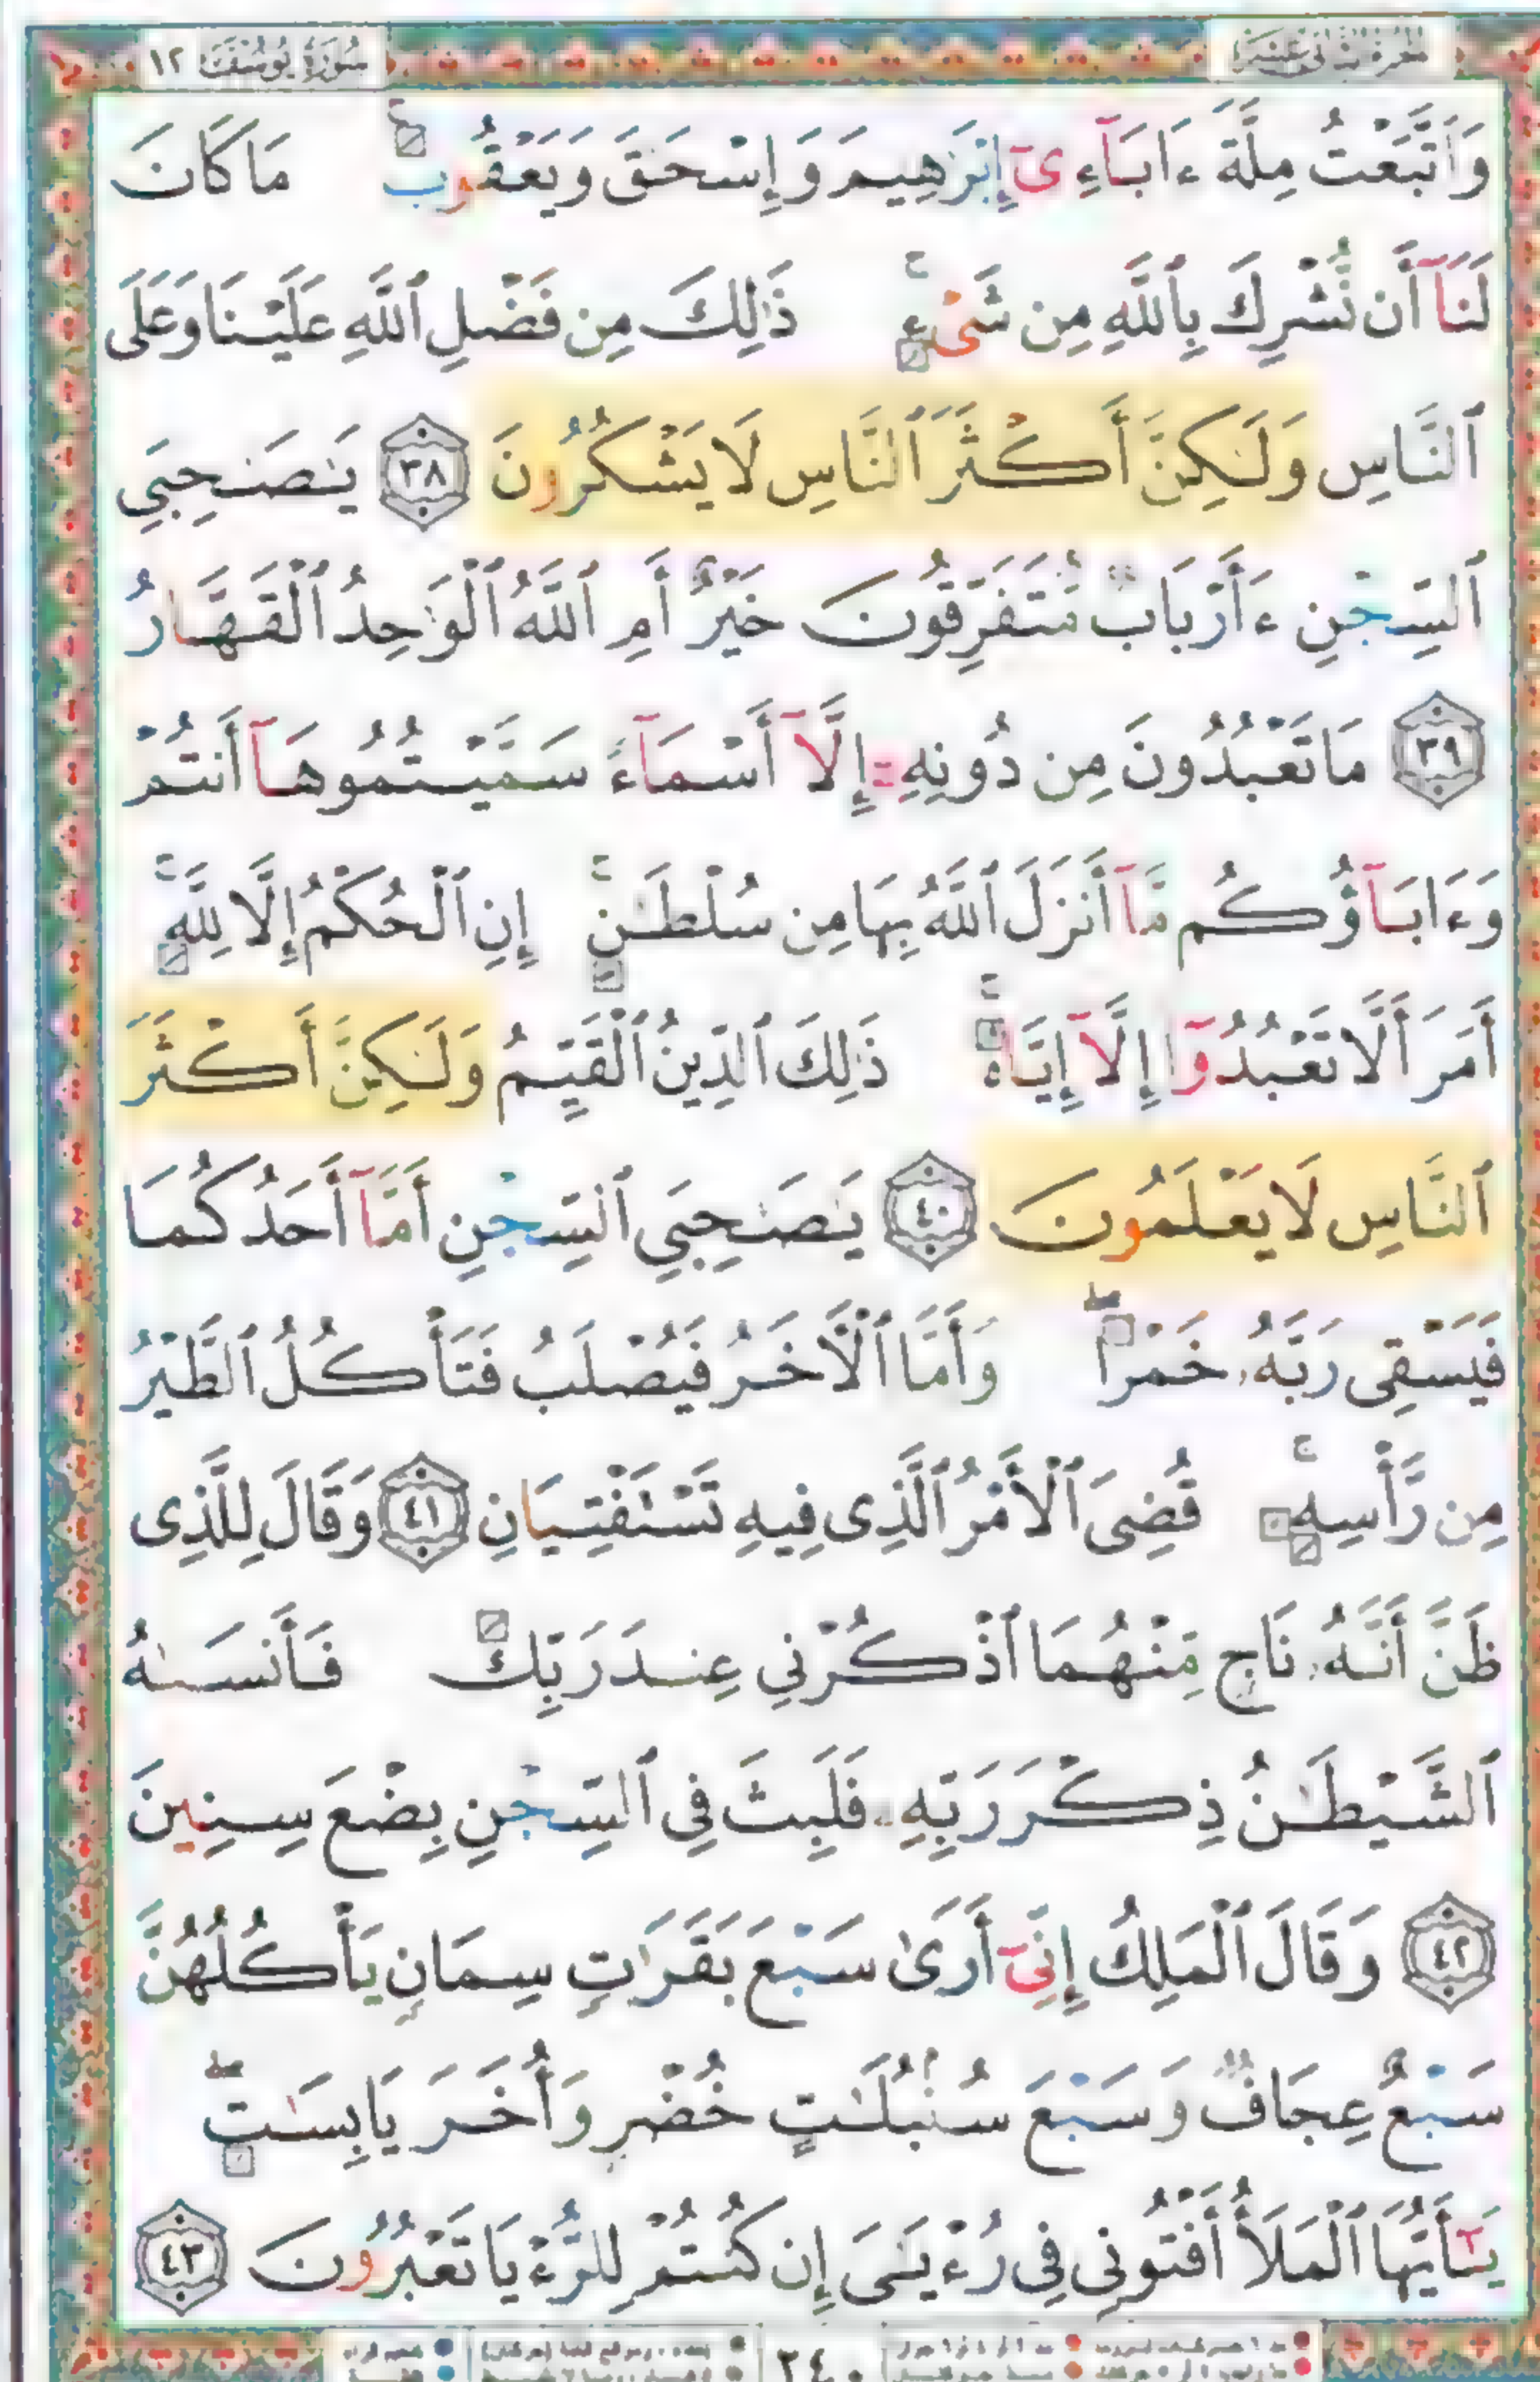 سُورَةُ يُوسُفَ ١٢
وَٱتَّبَعْتُ مِلَّةَ ءَابَآءِىٓ إِبْرَٰهِيمَ وَإِسْحَـٰقَ وَيَعْقُوبَ ۚ مَا كَانَ
لَنَآ أَن نُّشْرِكَ بِٱللَّهِ مِن شَىْءٍ ۚ ذَٰلِكَ مِن فَضْلِ ٱللَّهِ عَلَيْنَا وَعَلَى
ٱلنَّاسِ وَلَـٰكِنَّ أَكْثَرَ ٱلنَّاسِ لَا يَشْكُرُونَ ٣٨ يَـٰصَـٰحِبَىِ
ٱلسِّجْنِ ءَأَرْبَابٌ مُّتَفَرِّقُونَ خَيْرٌ أَمِ ٱللَّهُ ٱلْوَٰحِدُ ٱلْقَهَّارُ
٣٩ مَا تَعْبُدُونَ مِن دُونِهِۦٓ إِلَّآ أَسْمَآءً سَمَّيْتُمُوهَآ أَنتُمْ
وَءَابَآؤُكُم مَّآ أَنزَلَ ٱللَّهُ بِهَا مِن سُلْطَـٰنٍ ۚ إِنِ ٱلْحُكْمُ إِلَّا لِلَّهِ ۚ
أَمَرَ أَلَّا تَعْبُدُوٓا۟ إِلَّآ إِيَّاهُ ۚ ذَٰلِكَ ٱلدِّينُ ٱلْقَيِّمُ وَلَـٰكِنَّ أَكْثَرَ
ٱلنَّاسِ لَا يَعْلَمُونَ ٤٠ يَـٰصَـٰحِبَىِ ٱلسِّجْنِ أَمَّآ أَحَدُكُمَا
فَيَسْقِى رَبَّهُۥ خَمْرًا ۖ وَأَمَّا ٱلْـَٔاخَرُ فَيُصْلَبُ فَتَأْكُلُ ٱلطَّيْرُ
مِن رَّأْسِهِۦ ۚ قُضِىَ ٱلْأَمْرُ ٱلَّذِى فِيهِ تَسْتَفْتِيَانِ ٤١ وَقَالَ لِلَّذِى
ظَنَّ أَنَّهُۥ نَاجٍ مِّنْهُمَا ٱذْكُرْنِى عِندَ رَبِّكَ فَأَنسَىٰهُ
ٱلشَّيْطَـٰنُ ذِكْرَ رَبِّهِۦ فَلَبِثَ فِى ٱلسِّجْنِ بِضْعَ سِنِينَ
٤٢ وَقَالَ ٱلْمَلِكُ إِنِّىٓ أَرَىٰ سَبْعَ بَقَرَٰتٍ سِمَانٍ يَأْكُلُهُنَّ
سَبْعٌ عِجَافٌ وَسَبْعَ سُنۢبُلَـٰتٍ خُضْرٍ وَأُخَرَ يَابِسَـٰتٍ ۖ
يَـٰٓأَيُّهَا ٱلْمَلَأُ أَفْتُونِى فِى رُءْيَـٰىَ إِن كُنتُمْ لِلرُّءْيَا تَعْبُرُونَ ٤٣
٢٤٠